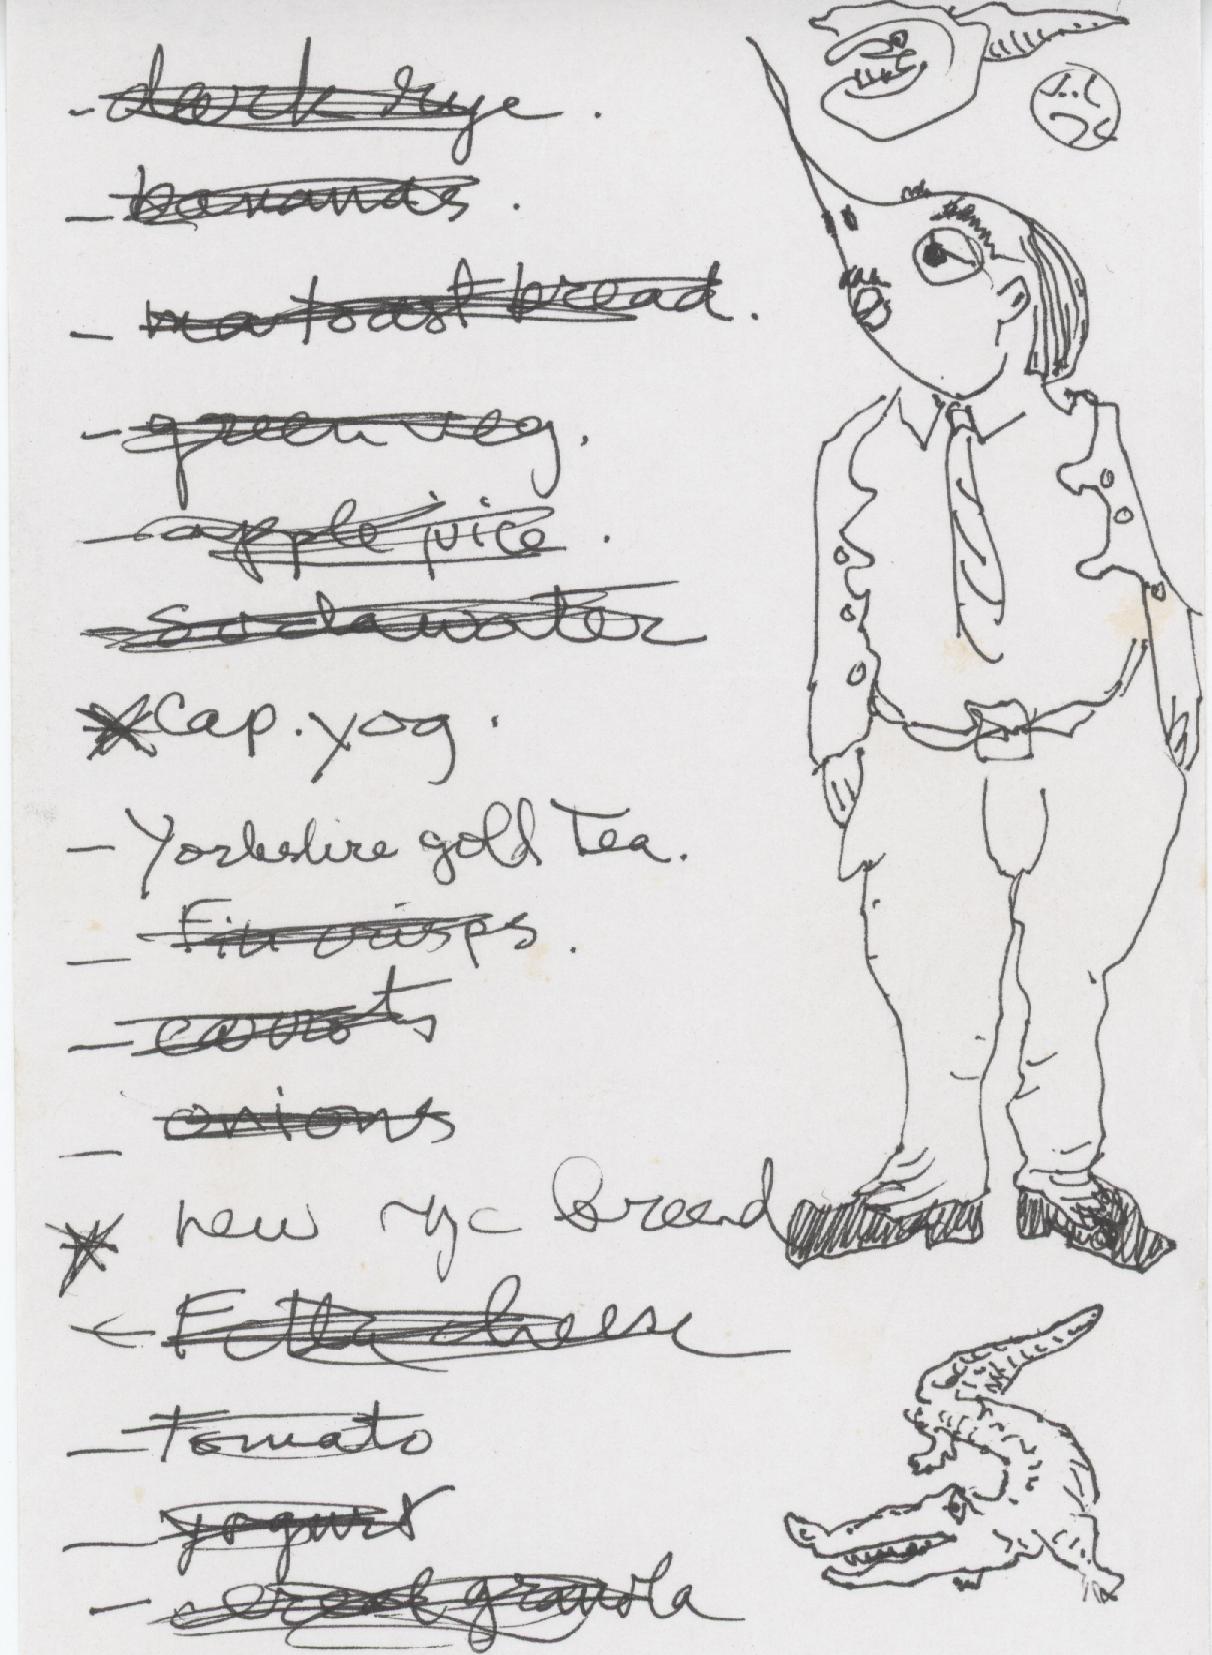 - dark rye.
- bananas.
- toast bread.
- green veg.
- apple juice.
- sodawater
* Cap. yog.
- Yorkshire gold Tea.
- Fin crisps.
- carrots
- onions
* new rye Bread
cheese
- Tomato
- yogurt
- granola